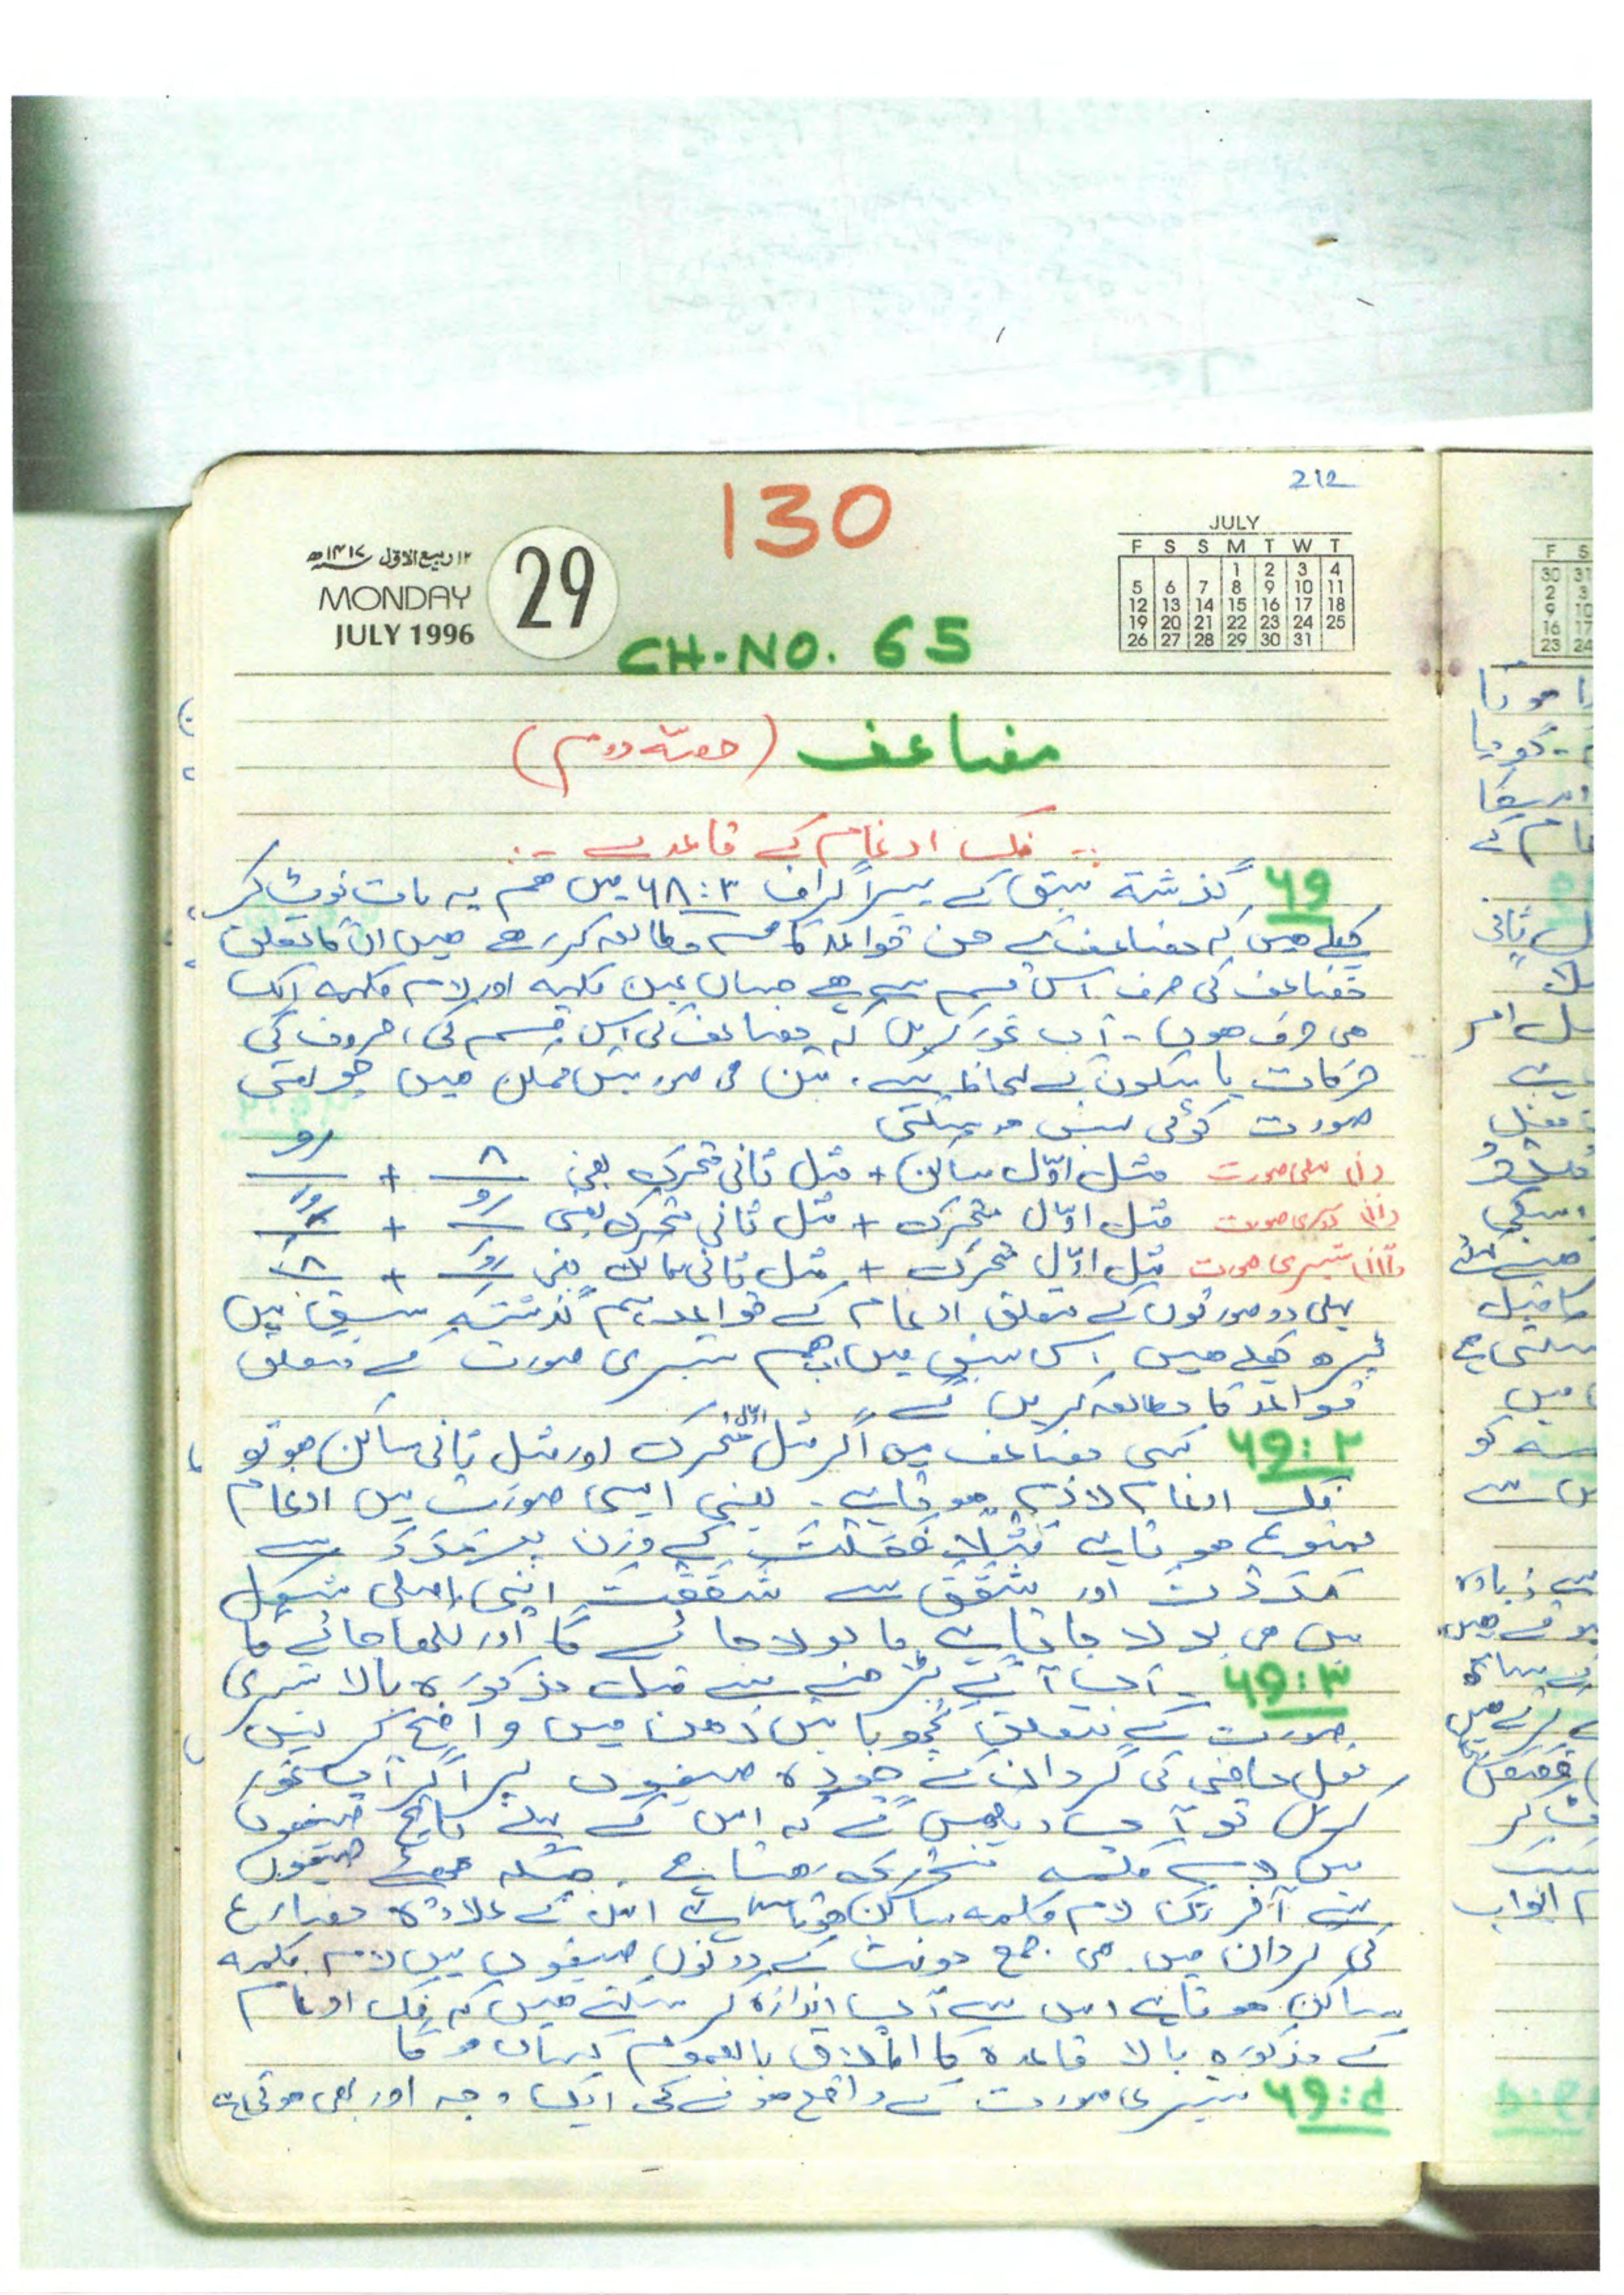 212
130
۱۲ ربیع الاوّل ۱۴۱۷ھ
MONDAY
JULY 1996
29
JULY
F S S M T W T
1 2 3 4
5 6 7 8 9 10 11
12 13 14 15 16 17 18
19 20 21 22 23 24 25
26 27 28 29 30 31
CH.NO. 65
مضاعف (حصّہ دوم)
فک ادغام کے قاعدے
۶۹ گذشتہ سبق کے پیراگراف ۶۸:۳ میں ہم یہ بات نوٹ کر
چکے ہیں کہ مضاعف کے جن قواعد کا ہم مطالعہ کر رہے ہیں ان کا تعلق
مضاعف کی صرف اس قسم سے ہے جہاں عین کلمہ اور لام کلمہ ایک
ہی حرف ہوں۔ آپ غور کریں کہ مضاعف کی اس قسم کی، حروف کی
حرکات یا سکون کے لحاظ سے، تین ہی صورتیں ممکن ہیں چوتھی
صورت کوئی نہیں ہو سکتی
(i) پہلی صورت مثل اوّل ساکن + مثل ثانی متحرک یعنی
(ii) دوسری صورت مثل اوّل متحرک + مثل ثانی متحرک یعنی
(iii) تیسری صورت مثل اوّل متحرک + مثل ثانی ساکن یعنی
پہلی دو صورتوں کے متعلق ادغام کے قواعد ہم گذشتہ سبق میں
پڑھ چکے ہیں اس سبق میں اب ہم تیسری صورت کے متعلق
قواعد کا مطالعہ کریں گے
۶۹:۲ کسی مضاعف میں اگر مثل اوّل متحرک اور مثل ثانی ساکن ہو تو
فک ادغام لازم ہوتا ہے۔ یعنی ایسی صورت میں ادغام
ممنوع ہوتا ہے مثلاً فَعَلْتَ کے وزن پر مَدَدَ سے
مَدَدْتَ اور شَقَقَ سے شَقَقْتَ اپنی اصلی شکل
میں ہی بولا جاتا ہے یا بولا جائے گا اور لکھا جائے گا
۶۹:۳ اب آگے بڑھنے سے قبل مذکورہ بالا تیسری
صورت کے متعلق کچھ باتیں ذہن میں واضح کر لیں
فعل ماضی کی گردان کے چودہ صیغوں پر اگر آپ غور
کریں تو آپ دیکھیں گے کہ اس کے پہلے پانچ صیغوں
میں لام کلمہ متحرک رہتا ہے۔ جبکہ چھٹے صیغوں
سے آخر تک لام کلمہ ساکن ہوتا ہے اس کے علاوہ مضارع
کی گردان میں ہی جمع مونث کے دونوں صیغوں میں لام کلمہ
ساکن ہوتا ہے اس سے آپ اندازہ کر سکتے ہیں کہ فک ادغام
کے مذکورہ بالا قاعدہ کا اطلاق بالعموم کہاں ہو گا
۶۹:۴ تیسری صورت کے واقع ہونے کی ایک وجہ اور بھی ہوتی ہے